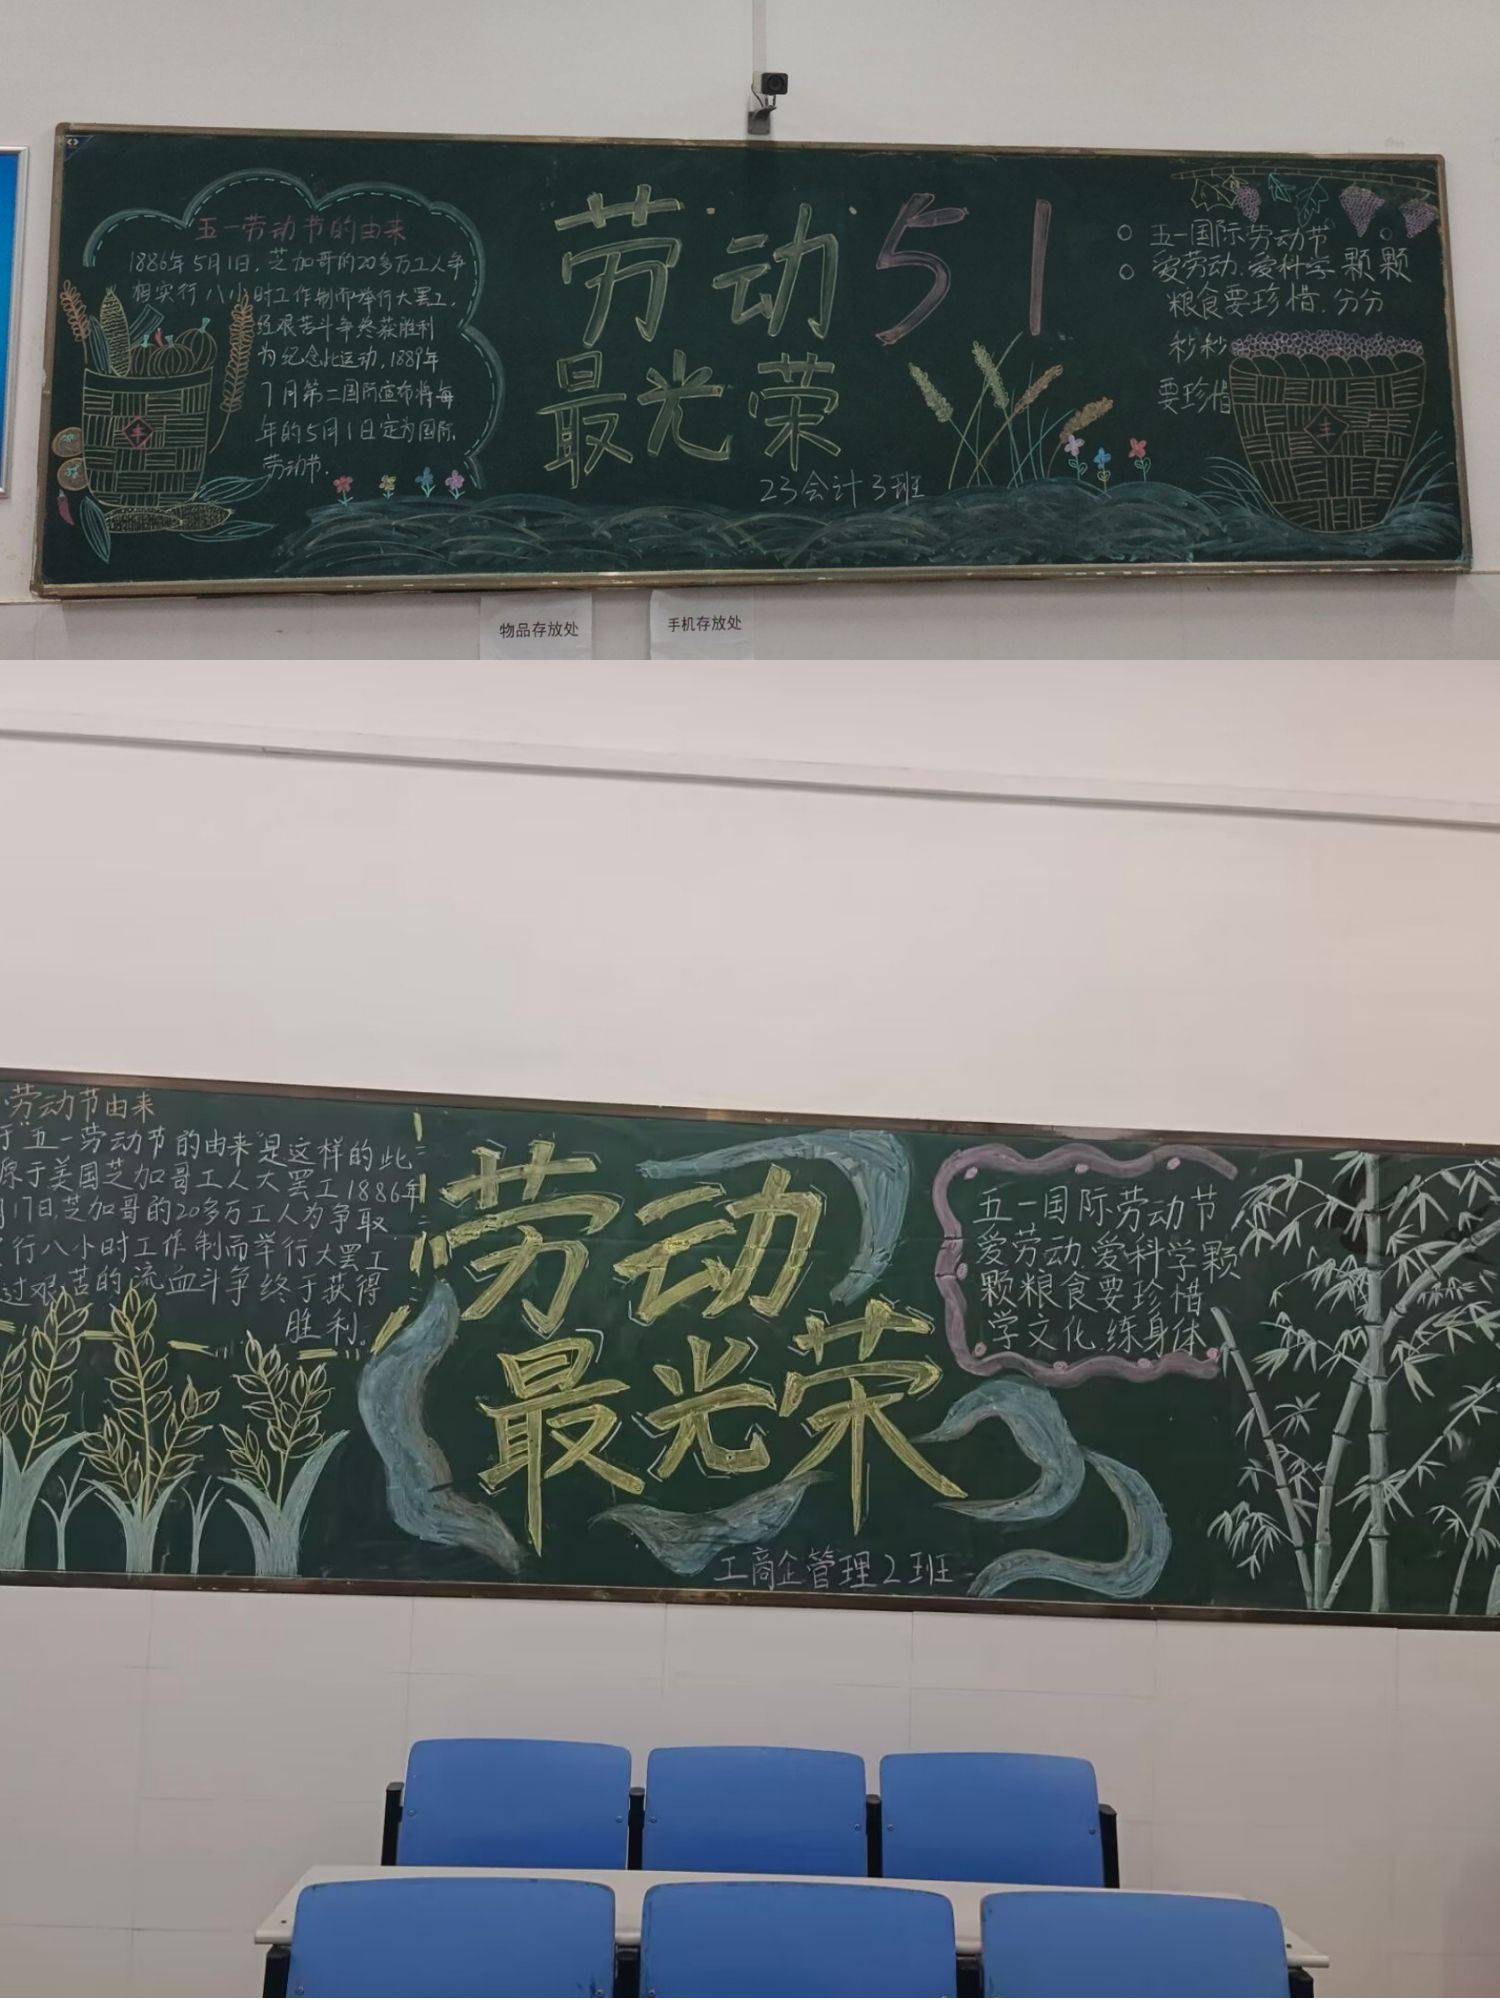 五一劳动节的由来
1886年5月1日,芝加哥的20多万工人争
相实行八小时工作制而举行大罢工,
经艰苦斗争终获胜利
为纪念此运动,1889年
7月第二国际宣布将每
年的5月1日定为国际
劳动节.
劳动51
最光荣
23会计3班
五一国际劳动节
爱劳动.爱科学 颗颗
粮食要珍惜.分分
秒秒
要珍惜
丰
丰
物品存放处
手机存放处
劳动节由来
"五一劳动节的由来"是这样的此
源于美国芝加哥工人大罢工1886年
月17日,芝加哥的20多万工人为争取
行八小时工作制而举行大罢工
过艰苦的流血斗争终于获得
胜利.
劳动
最光荣
工商企管理2班
五一国际劳动节
爱劳动.爱科学颗
颗粮食要珍惜
学文化.练身体